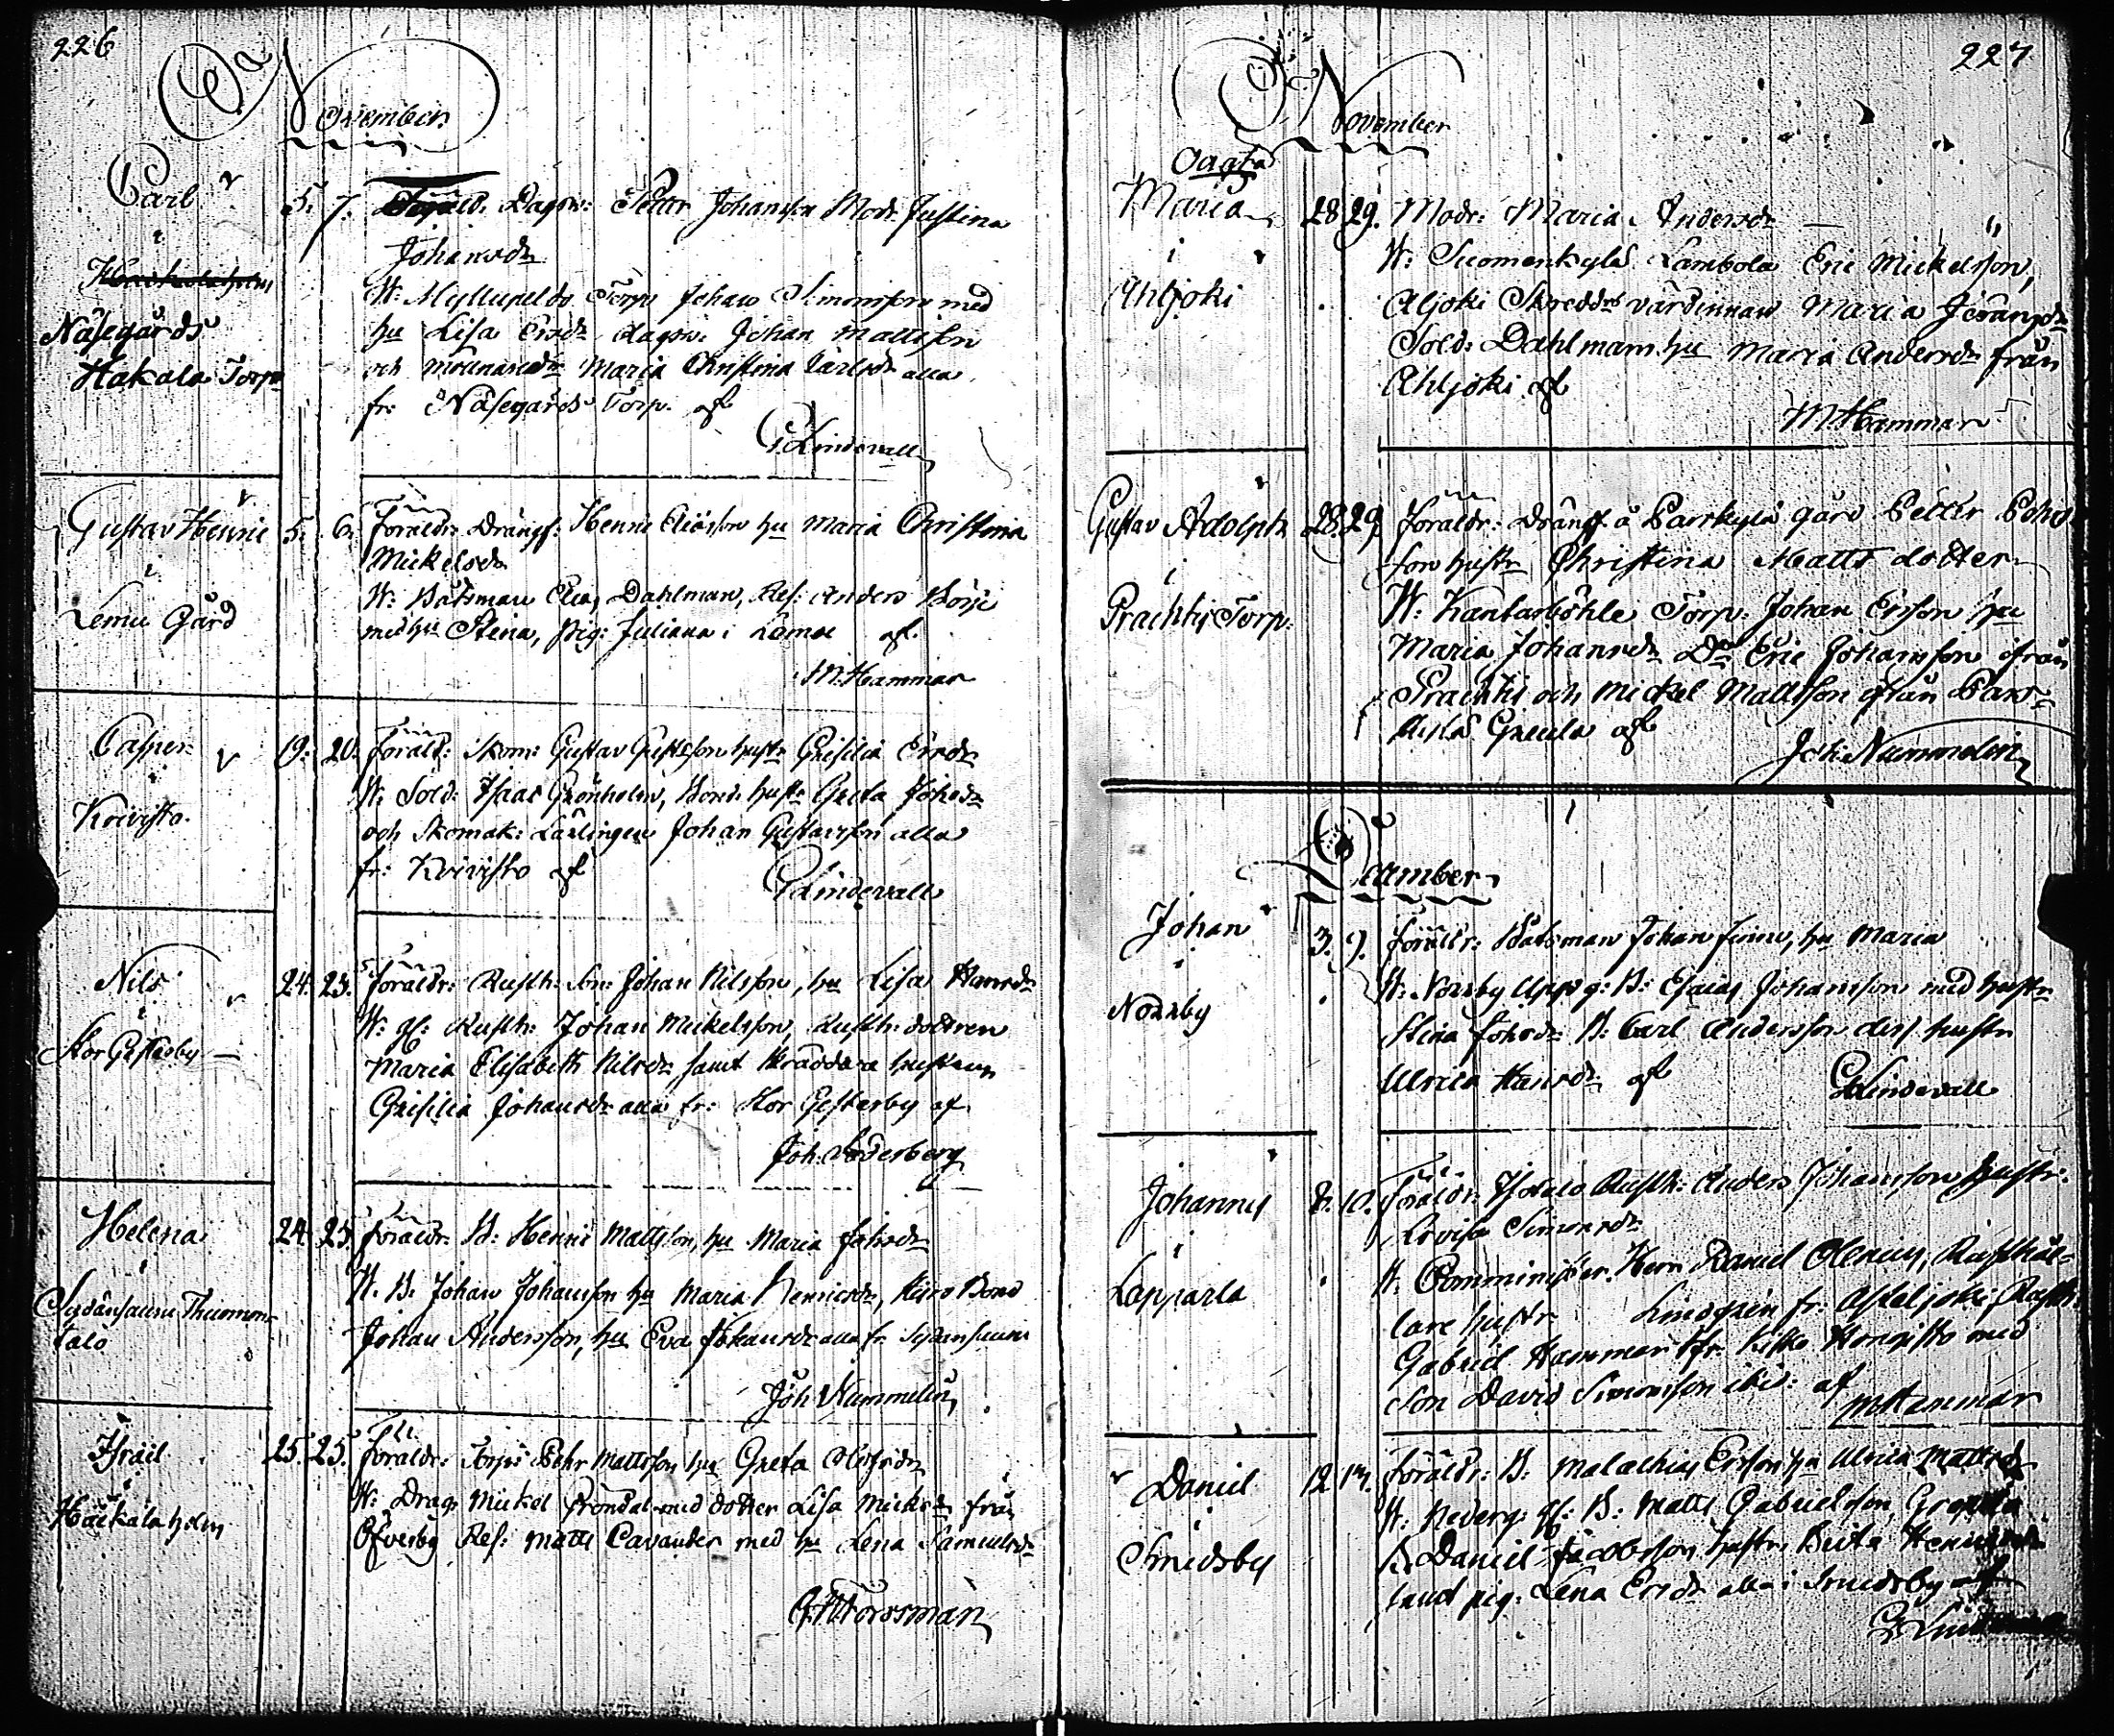 226
November
Carl
i
Näsegårds
Hakala Torp
5. 7. Dagsv: Petter Johansson Modr Justina
Johansdr
W: Torp: Johan Simonsson med
hu Lisa Ersdr dagsv. Johan Mattsson
och Maria Christina Carlsdr alla
fr: Näsegårds Torp. af
G Lindevall
Gustav Henric
i
Lemu Gård
5. 6. Föräldr: Drängf: Henric Eliasson hu Maria Christina
Mickelsdr
W: Båtsman Elias Dahlman, Ref: Anders Börje
med hu Stina, pig: Juliana i af
M. Hammar
Casper
i
Koivisto
19. 20. Föräld: Skom: Gustav Gustafson hustr Grisilia Ersdr
W. Sold: Isaac Grönholm, Bond: hustr Greta Johsdr
och Skomak: Lärlingen Johan Gustavsson alla
fr: Koivisto af
G Lindevall
Nils
i
Stor Gesterby
24. 25. Föräldr: Rusth: Son: Johan Nilsson, hu Lisa Hansdr
W: gl: Rusth: Johan Mickelsson, Rusth: dottren
Maria Elisabeth Nilsdr, samt Skräddare hustrun
Grisilia Johansdr alla fr: Stor Gesterby af
Joh. Söderberg
Helena
i
Sydänsaum
talo
24. 25. Föräldr: B: Henric Mattsson, hu Maria Johsdr
W. B. Johan Johansson hu Maria Henricsdr, Bond
Johan Andersson, hu Eva Johansdr alla fr
Joh Nummelin
Israel
i
Häckälaholm
25. 25. Föräldr: Torp: Pehr Mattsson hu Greta
W: Drag Mickel Gröndal med dotter Lisa Micksdr från
Öfverby Ref: Matts Cavander med hu Lena Samuelsdr
Forssman
227
November
Oägta
Maria
i
Ahljoki
28. 29. Modr: Maria Andersdr
W: Suomenkylä Lambola Eric Mickelsson,
Aljoki värdinnan Maria
Sold: Dahlman hu Maria Andersdr från
Ahljoki af
M Hammar
Gustav Adolph
i
Prachtis Torp:
28. 29. Föräldr: Dräng å gård Petter
son hustr Christina Matts dotter
W: Kantarböhle Torp: Johan Ersson hu
Maria Johansdr Do Eric Johansson ifrån
Prachtis och Mickel Mattsson ifrån Pars-
af
Joh: Nummelin
December
Johan
i
Norrby
3. 9. Föräldr: Båtsman Johan Finne, hu Maria
W: Norrby B: Esaias Johansson med hustr
Stina Johsdr B: Carl Andersson dess hustr
Ulrica Hansdr af
G Lindevall
Johannes
i
Lapparla
8. 10. Föräldr: Rusth: Anders Johansson hustr:
Lovisa Simonsdr
W. Comminister Herr Daniel Olenius, Rusthål-
lare hustr Lindgrén fr: Rusth:
Gabriel Hammar fr Kisko med
Son David Simonsson ibi: af
M Hammar
Daniel
i
Smidsby
12. 14. Föräldr: B: Malachias Ersson hu Ulrica Mattsdr
W. gl: B: Matts Gabrielsson,
B. Daniel Jacobsson hustr, Brita
samt pig: Lena Ersdr alla i Smidsby af